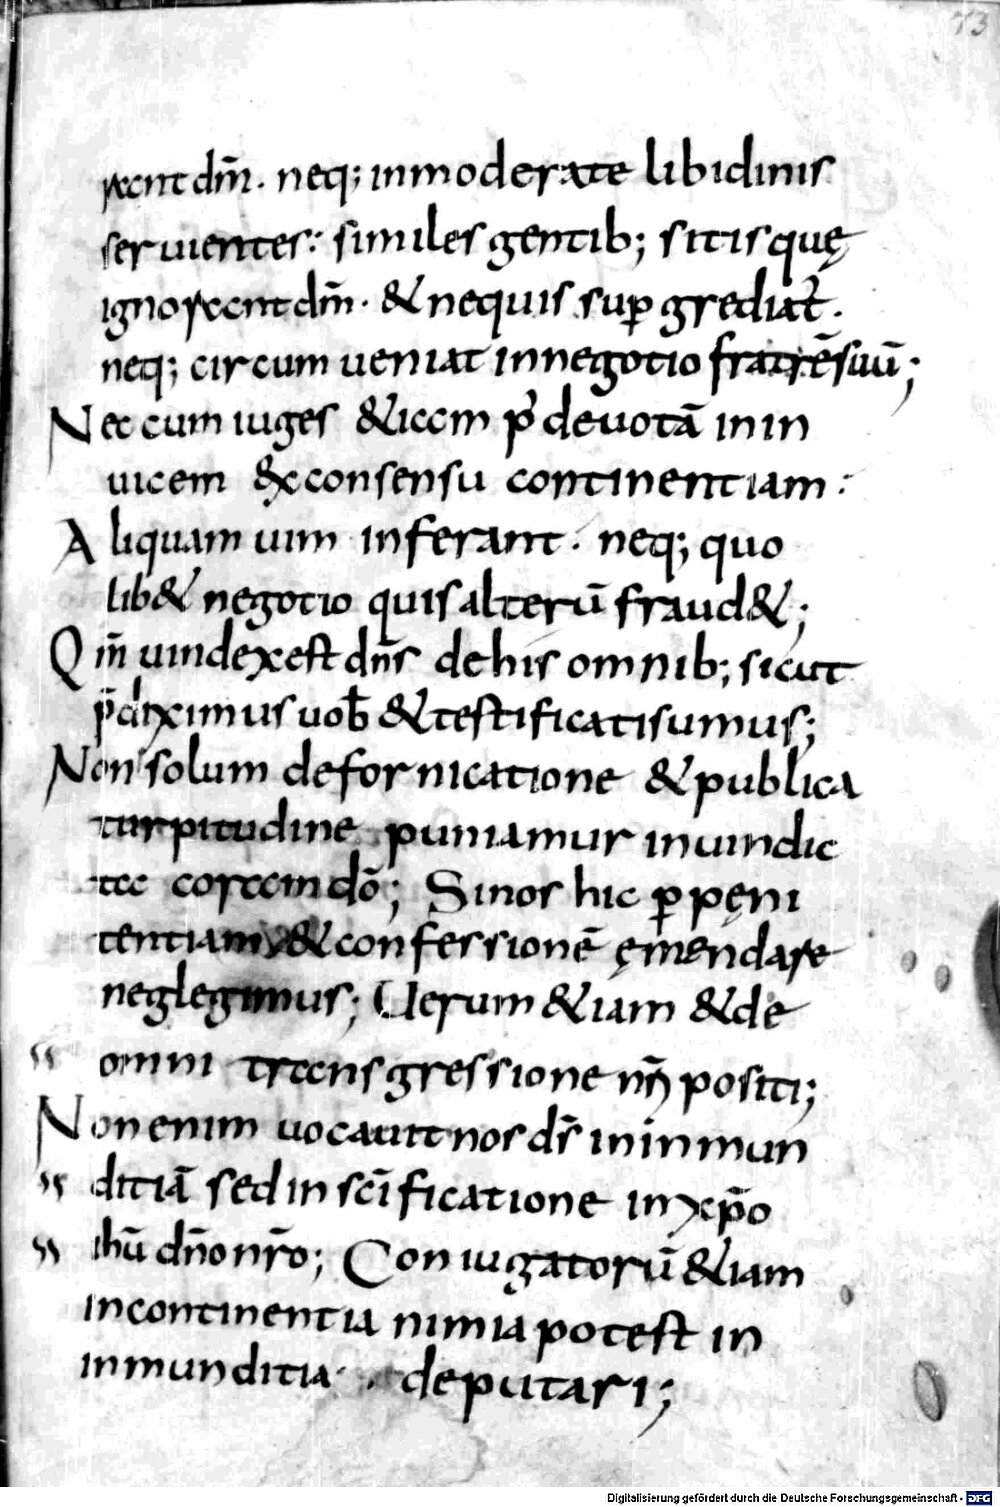 73
rant dm̄. neq; inmoderate libidinis
seruientes: similes gentib; sitis quę
ignorant dm̄. & nequis sup̱grediat̄.
neq; circumueniat innegotio fratrē suū;
Nec cum iuges &iam p̄ deuotā inin
uicem exconsensu continentiam:
Aliquam uim inferant. neq; quo
lib& negotio quis alterū fraud&;
Qm̄ uindex est dn̄s dehis omnib; sicut
p̄diximus uob̄ &testificati sumus;
Non solum defornicatione &publica
turpitudine puniamur inuindic
ta coram dō; Sinos hic p̱ pęni
tentiam &confessionē ęmendare
neglegimus; Uerum &iam &de
omni transgressione nr̄i positi;
Non enim uocauit nos ds̄ ininmun
ditiā sed in sc̄ificatione in xp̄o
ihū dn̄o nr̄o; Coniugatorū &iam
incontinentia nimia potest in
inmunditia deputari;
Digitalisierung gefördert durch die Deutsche Forschungsgemeinschaft - DFG